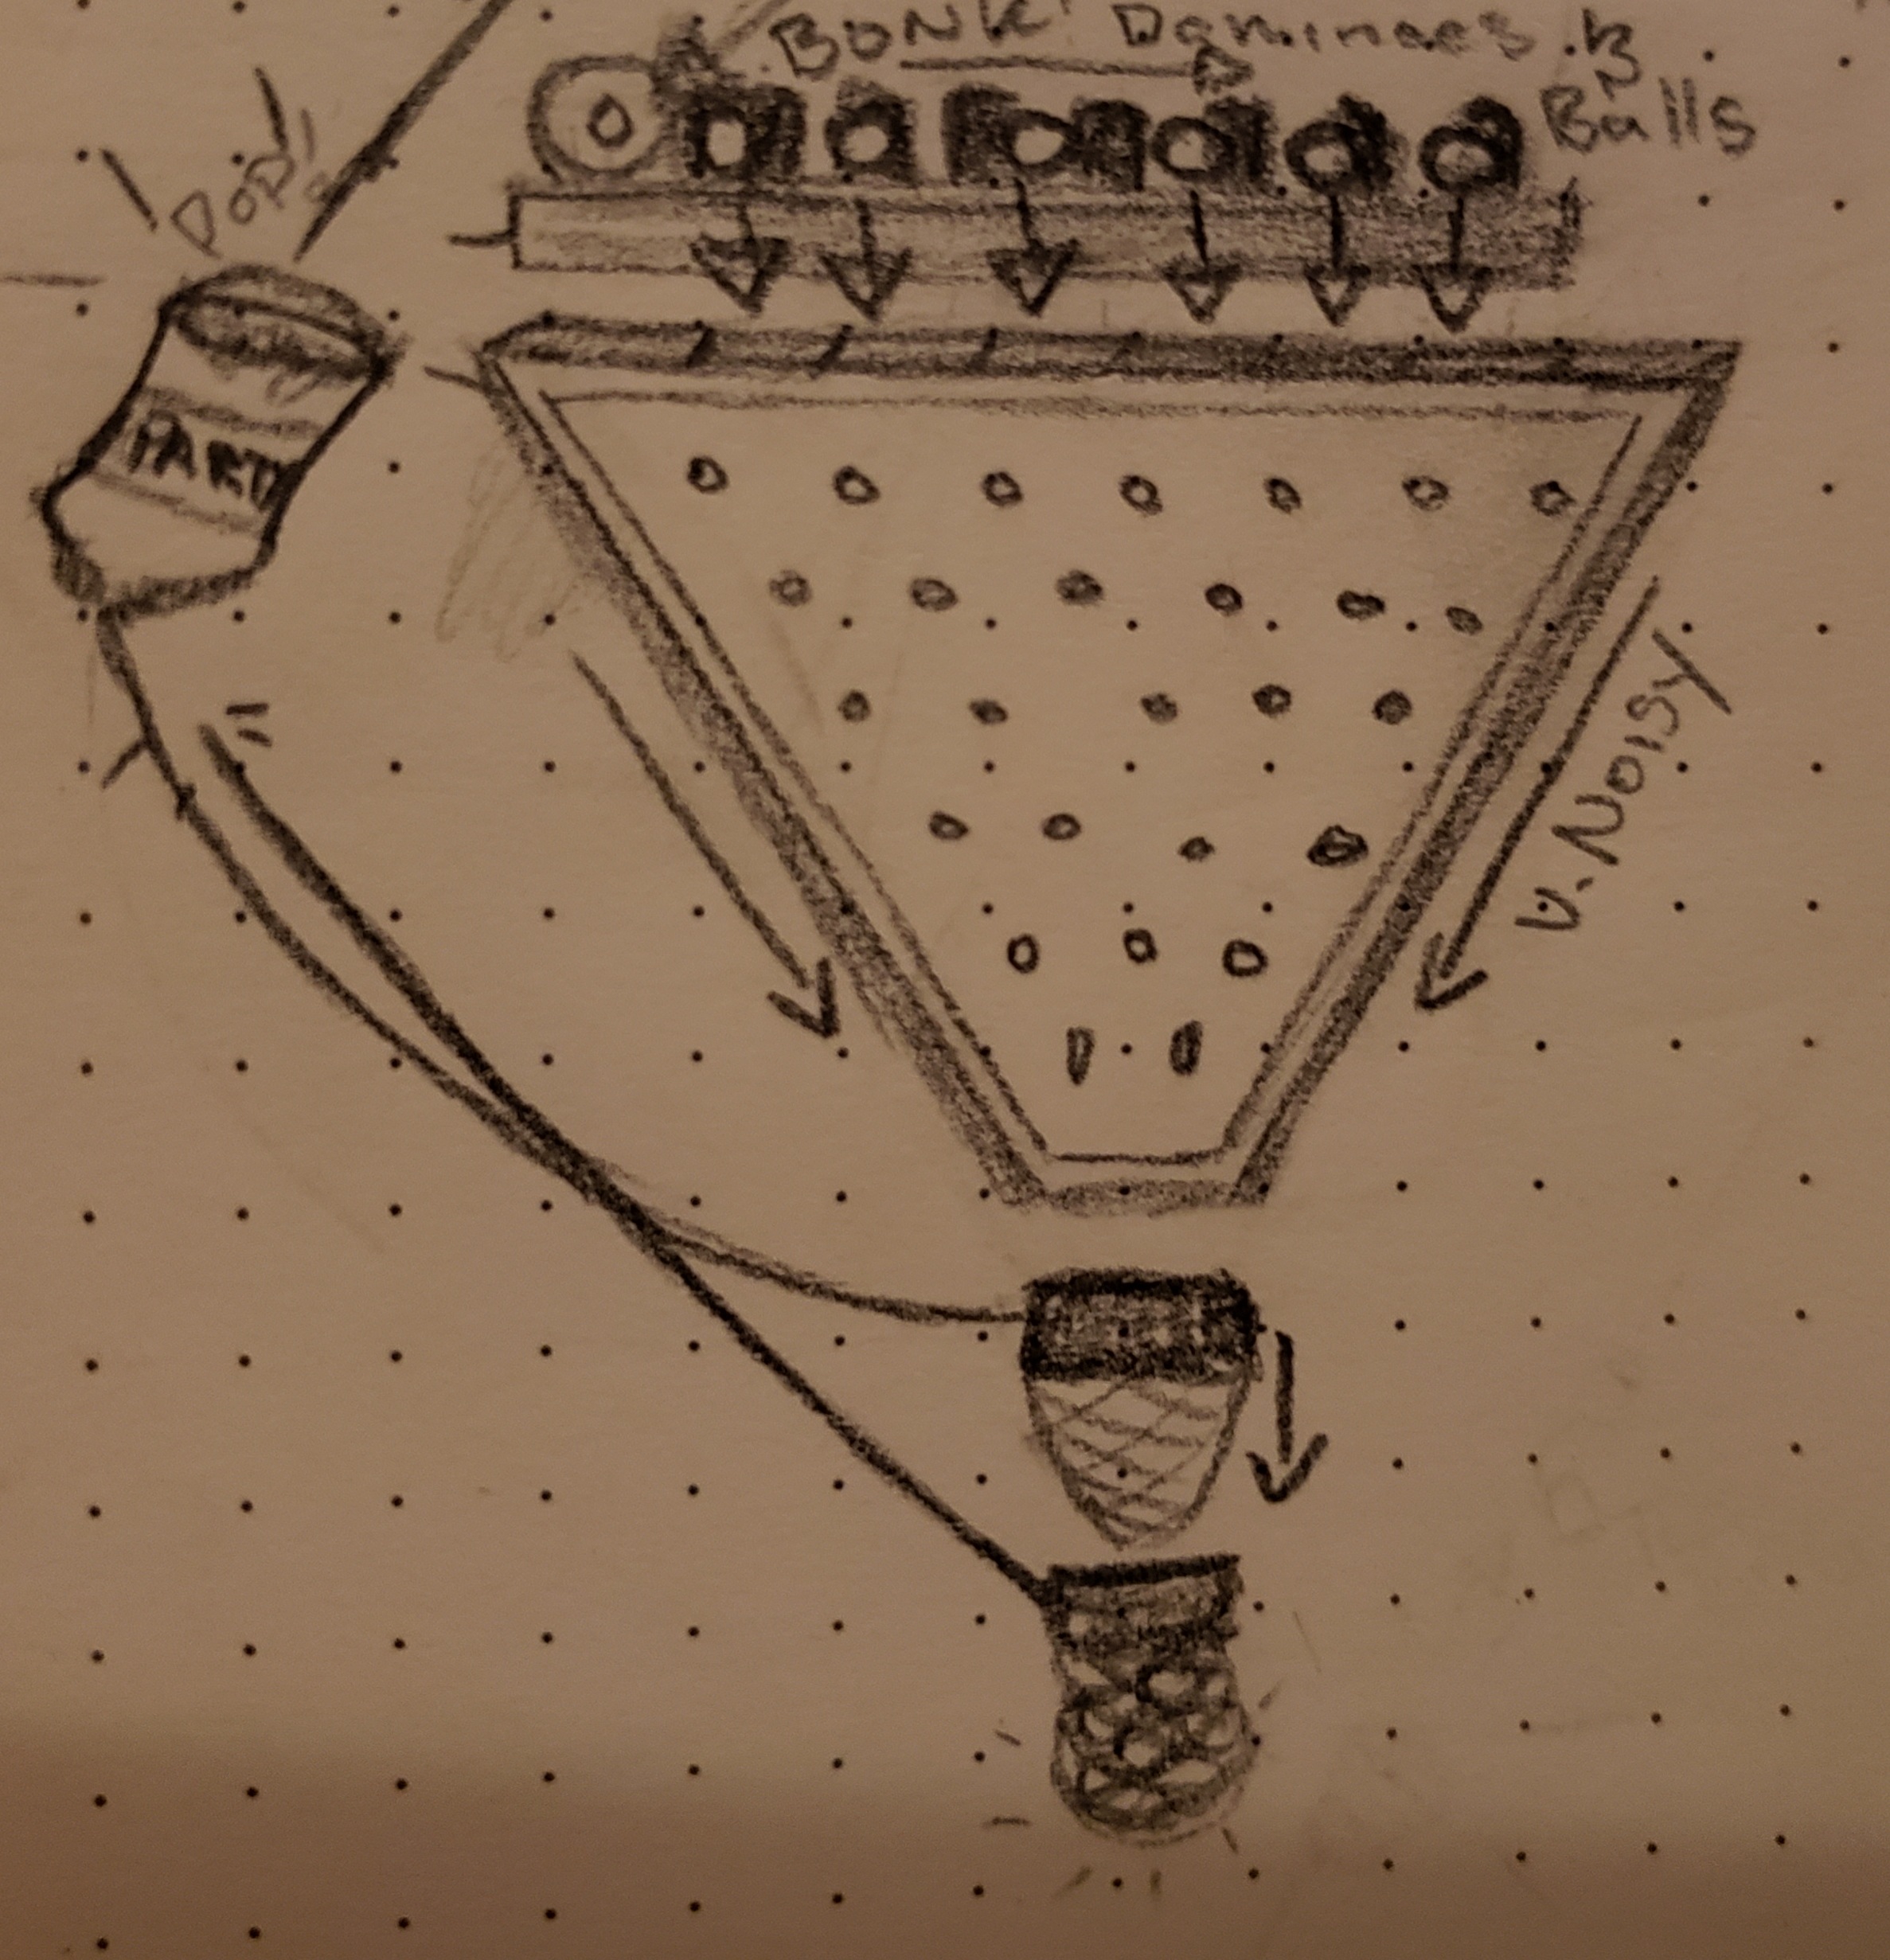 BONK! Dominoes &
Balls
POP!
PART
V. NOISY